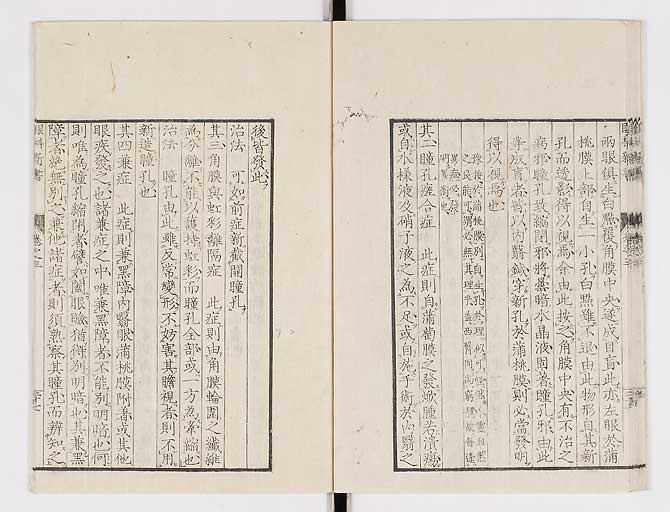 兩眼俱生白點覆角膜中央遂成目盲此亦左眼於蒲
桃膜上部自生一小孔白點雖不退由此物形自其新
孔而透影得以視焉余由此按之角膜中央有不治之
病邪瞳孔致縮閉邪將曇暗水晶液固著瞳孔邪由此
等成盲者皆以內翳鍼穿新孔於蒲桃膜則必當發明
得以視焉也
其二瞳孔瘞合症 此症則自蒲萄膜之發焮腫若潰瘍
或自水樣液及硝子液之為不足或自施手術於內翳之
後皆發此
治法 可如前症新截開瞳孔
其三角膜與虹彩離隔症 此症則由角膜輪圍之纖維
為分離不能以護持虹彩而瞳孔全部或一方為牽縮也
治法 瞳孔由此雖反常變形不妨害其瞻視者則不用
新造瞳孔也
其四兼症 此症則兼黑障內翳眼蒲桃膜附著或其他
眼疾發之也諸兼症之中唯兼黑障者不能別明暗也何
則唯為瞳孔縮閉者譬如闔眼瞼猶得別明暗也其兼黑
障者絕無別之兼他諸症者則須熟察其瞳孔而辨知之
眼科新書
卷之三